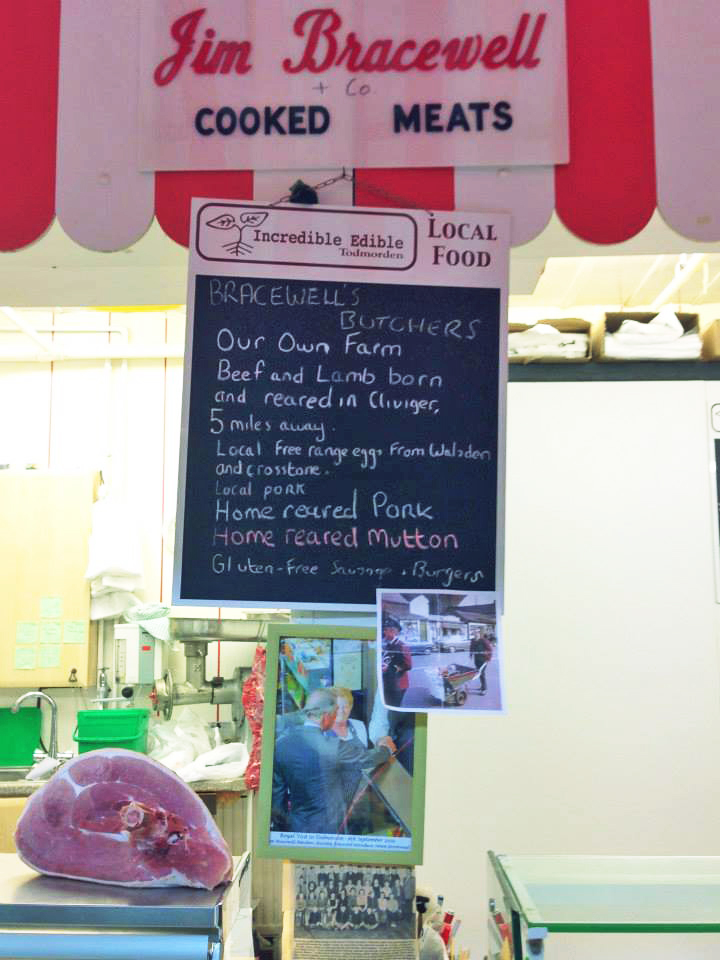 Jim Bracewell
+ Co
COOKED MEATS
Incredible Edible
Todmorden
LOCAL
FOOD
BRACEWELL'S
BUTCHERS
Our Own Farm
Beef and Lamb born
and reared in Cliviger,
5 miles away.
Local free range eggs from Walsden
and crosstone.
Local pork
Home reared Pork
Home reared Mutton
Gluten-Free Sausage + Burgers
Royal Visit to Todmorden - 6th September